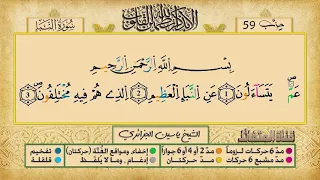 حِزْب 59
سُورَةُ النَّبَإِ
بِسْمِ اللَّهِ الرَّحْمَٰنِ الرَّحِيمِ
عَمَّ يَتَسَاءَلُونَ ۝١ عَنِ النَّبَإِ الْعَظِيمِ ۝٢ الَّذِي هُمْ فِيهِ مُخْتَلِفُونَ ۝٣
الشيخ ياسين الجزائري
مدّ 6 حركات لزوماً
مدّ 2 أو 4 أو 6 جوازاً
إخفاء، ومواقع الغُنَّة (حركتان)
تفخيم
مدّ مشبع 6 حركات
مدّ حركتان
إدغام، وما لا يُلفظ
قلقلة